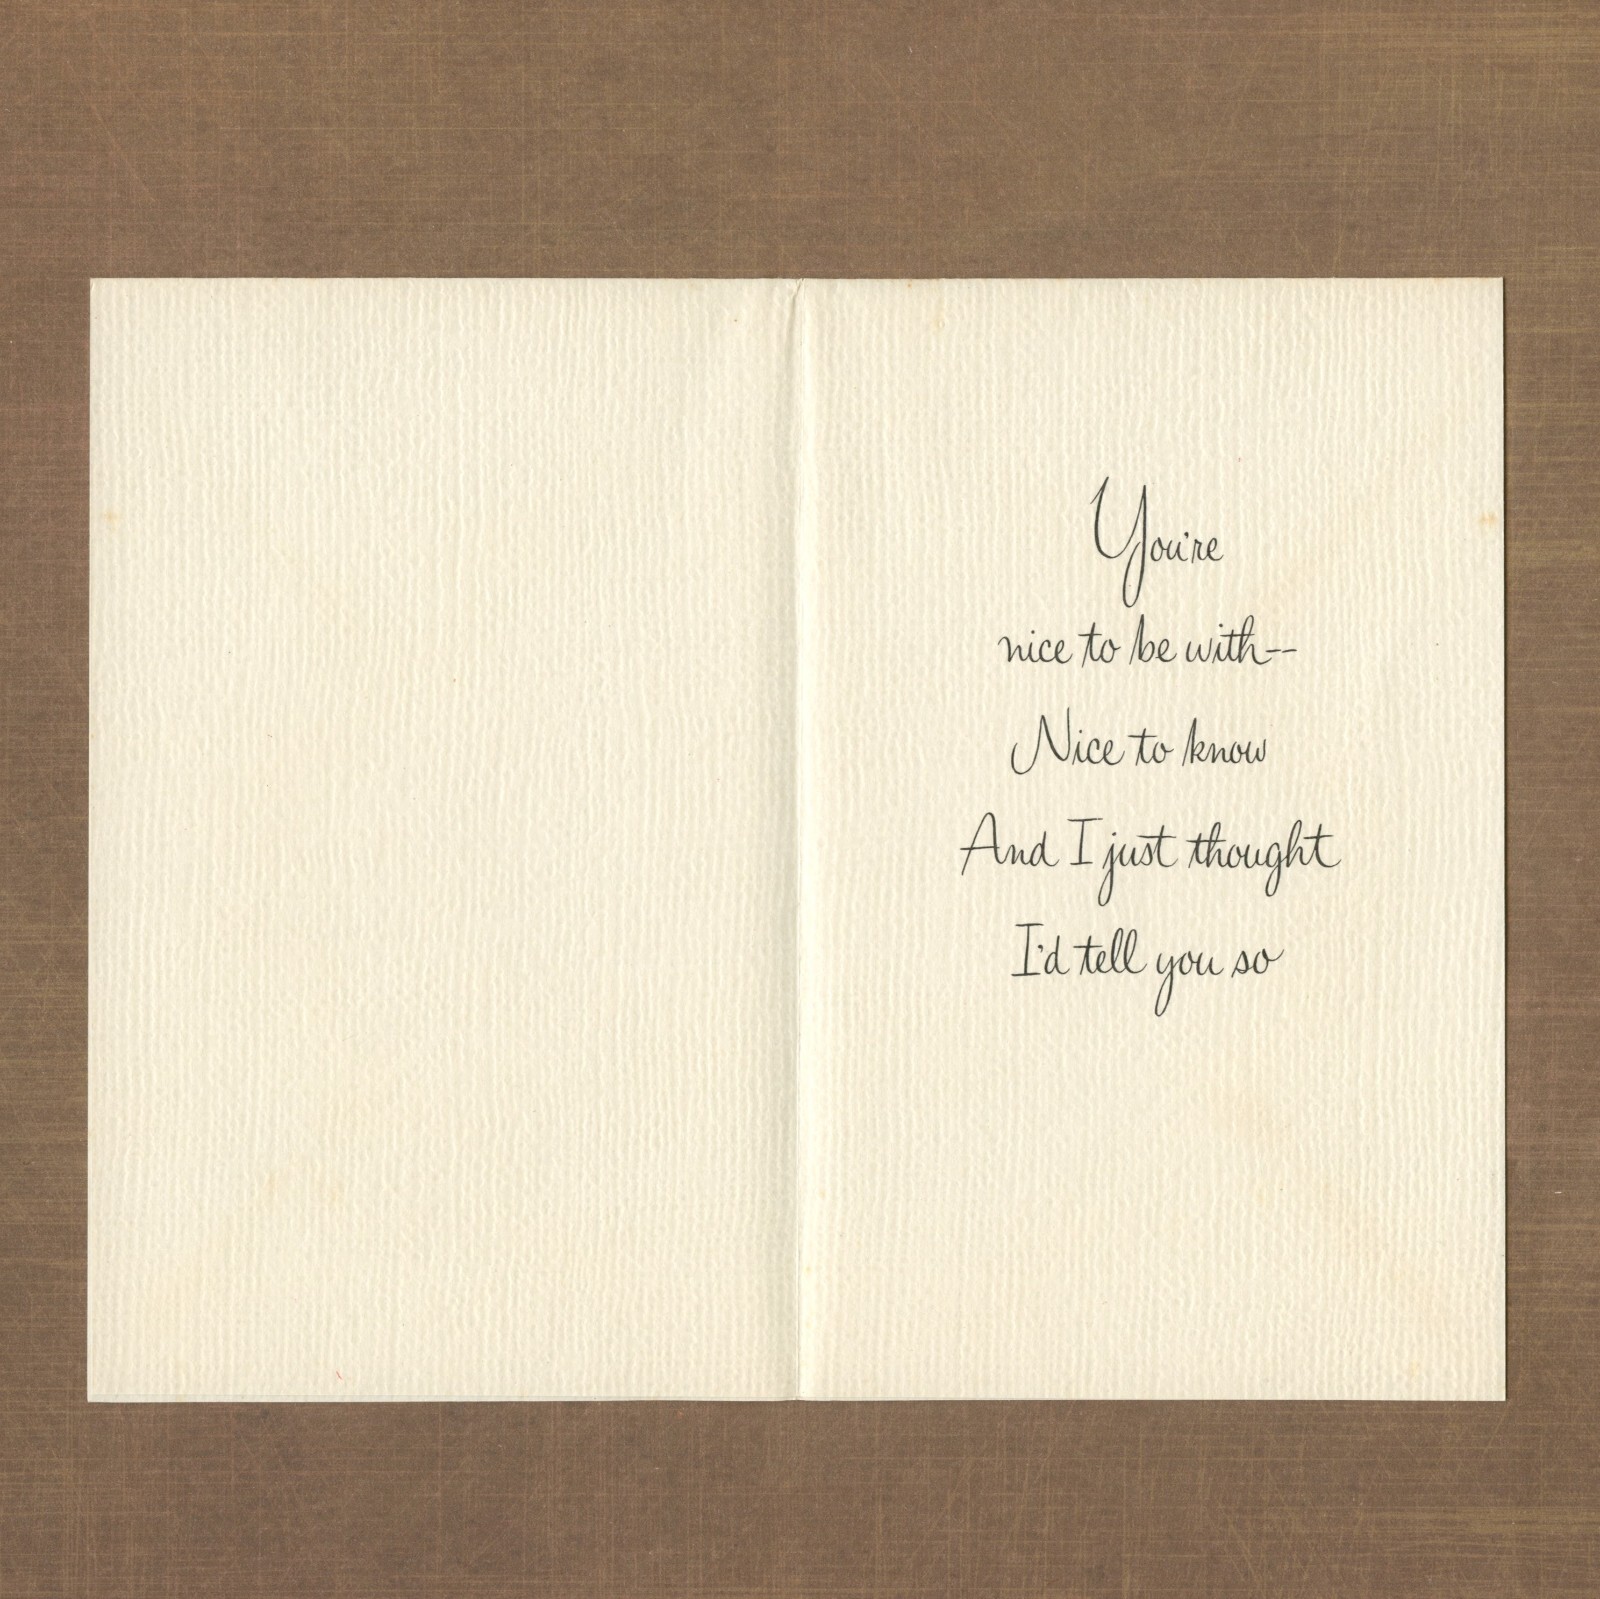 You're
nice to be with--
Nice to know
And I just thought
I'd tell you so